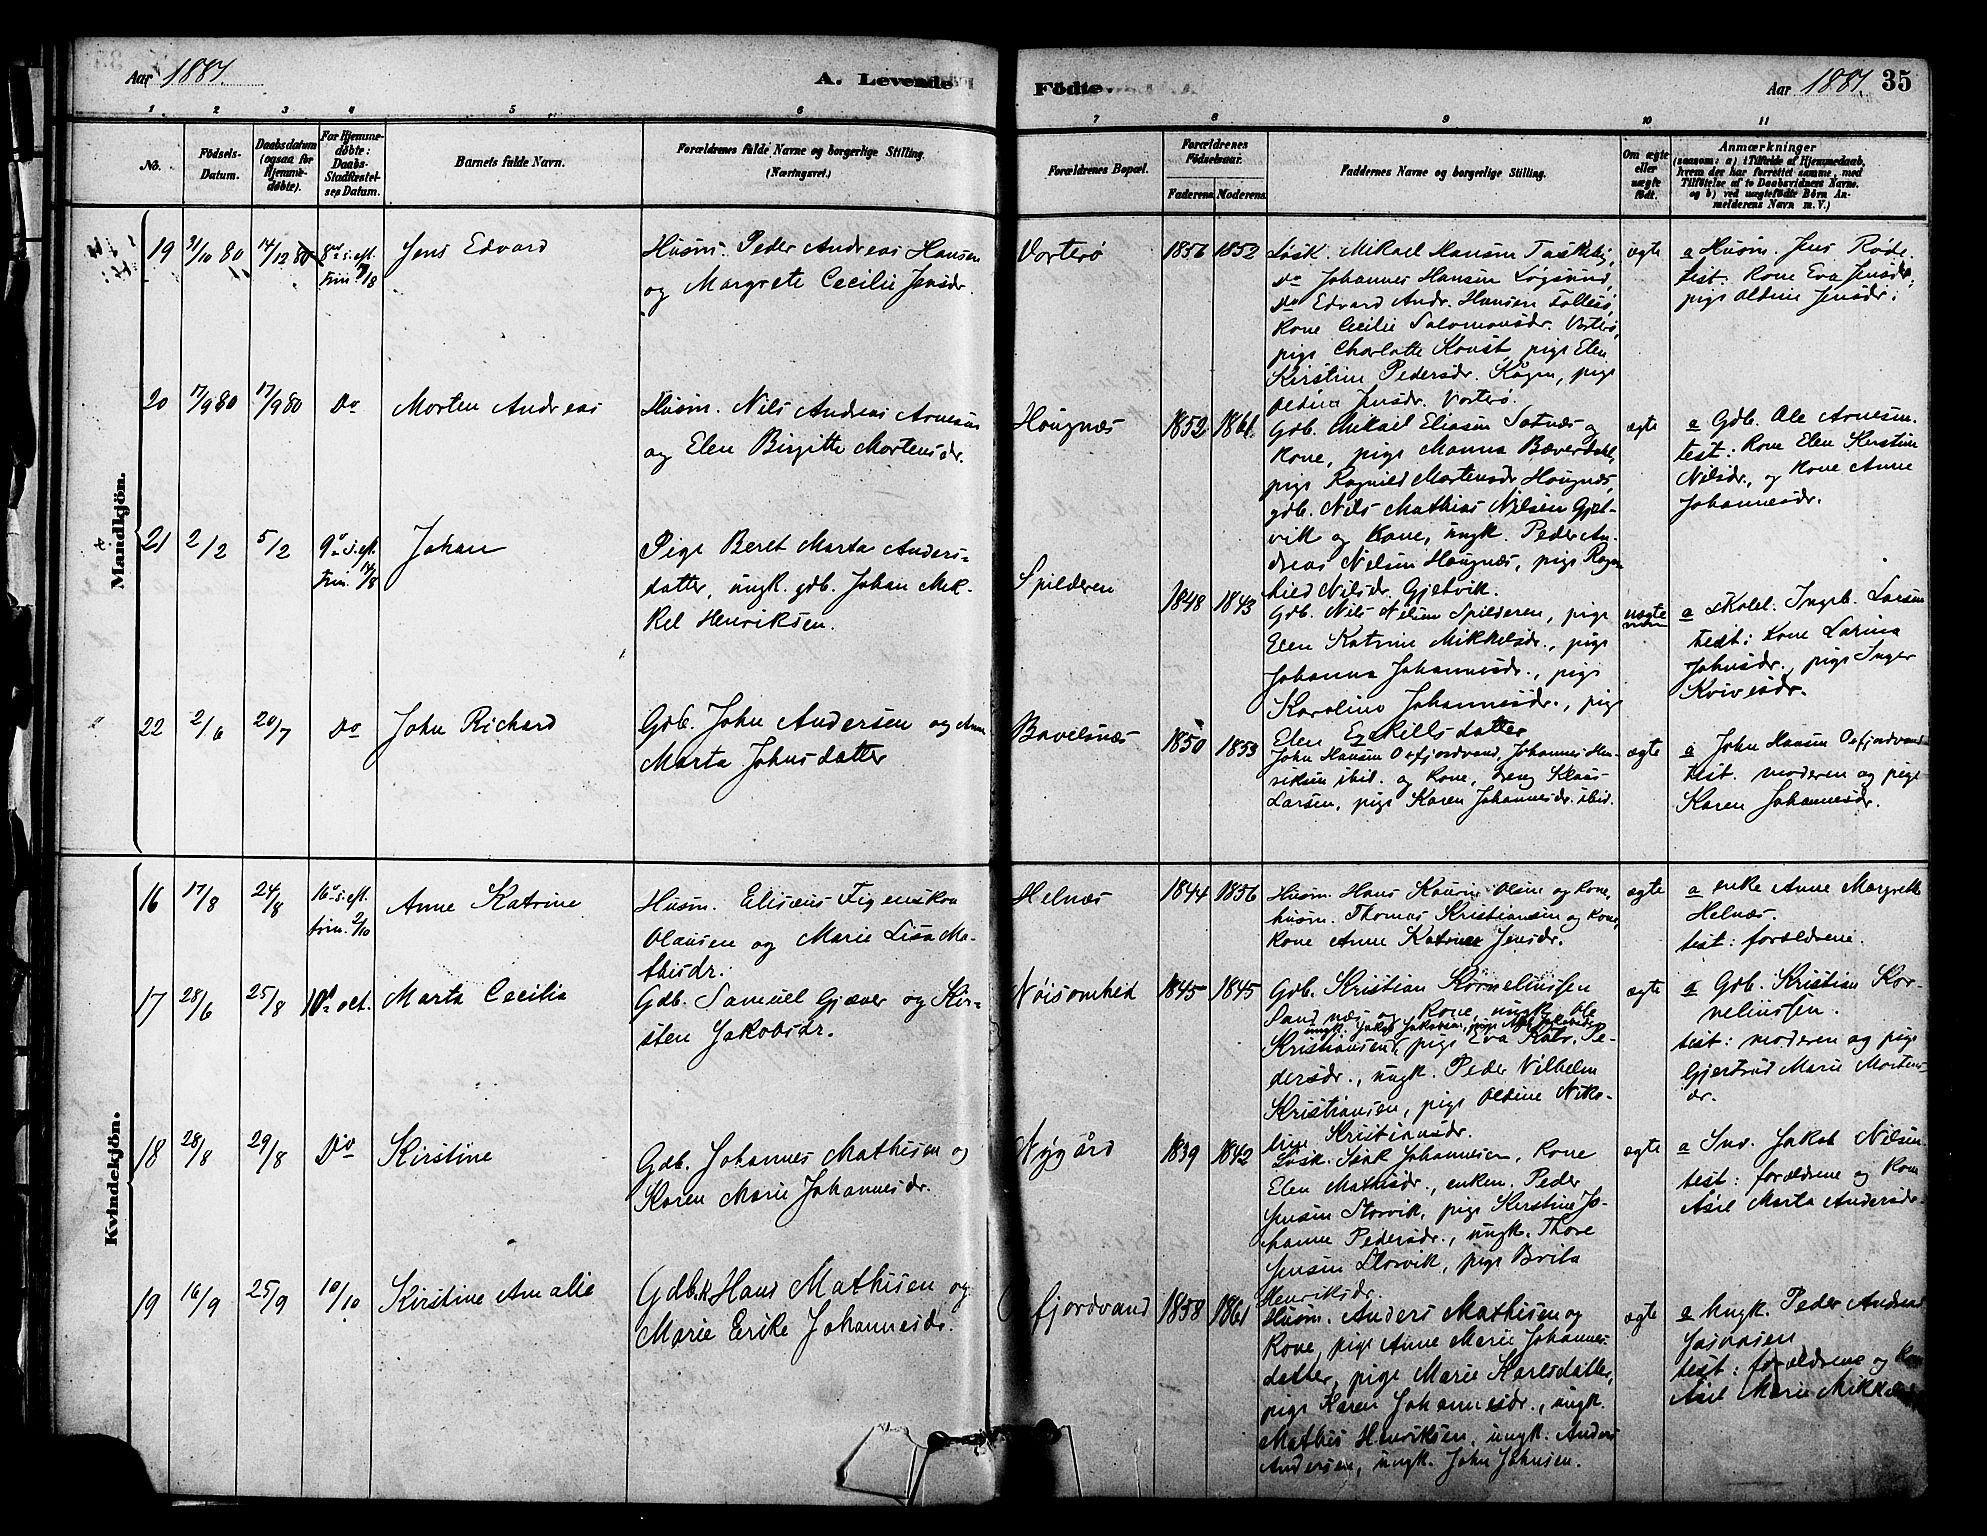 Aar 1881.
A. Levende
Fødte.
Aar 1881.
35
1 2 3 4 5 6 7 8 9 10 11
No.
Fødsels-
Datum.
Daabsdatum
(ogsaa for
Hjemme-
døbte).
For Hjemme-
døbte:
Daabs-
Stadfæstel-
ses Datum.
Barnets fulde Navn.
Forældrenes fulde Navne og borgerlige Stilling.
(Næringsvei.)
Forældrenes Bopæl.
Forældrenes
Fødselsaar.
Faderens. Moderens.
Faddernes Navne og borgerlige Stilling.
Om ægte
eller
uægte
født.
Anmærkninger
(saasom: a) i Tilfælde af Hjemmedaab,
hvem der har forrettet samme, med
Tilføielse af to Daabsvidners Navne.
og b) ved uægtefødte Børn An-
melderens Navn m. V.)
Mandkjøn.
19
31/10 80
14/12 80
8d s. eft.
Trin. 7/8
Jens Edvard
Husm. Peder Andreas Hansen
og Margrete Cecilie Jensdr.
Vorterø
1856 1852
Løsk. Mikael Hansen
Do Johannes Hansen Løgsund,
Do Edvard Andr. Hansen
Kone Cecilie Salomonsdr. Vorterø,
pige Charlotte Koust, pige Elen
Kirstine Pedersdr. Kågen, pige
Oldine Jensdr. Vorterø.
ægte
a Husm. Jens Røde.
test. Kone Eva Jensdr;
pige Oldine Jensdr;
20
17/9 80
17/9 80
Do
Morten Andreas
Husm. Nils Andreas Arnesen
og Elen Birgitte Mortensdr.
Hougnæs
1852 1861.
Gdb. Mikail Eliasen Sotnæs og
Kone, pige Manna Bæverdahl,
pige Ragnild Mortensdr Hougnæs,
gdb. Nils Mathias Nilsen Gjøt-
vik og Kone, ungk. Peder An-
dreas Nilsen Hougnæs, pige Ragn
hild Nilsdr. Gjetvik.
ægte
a Gdb. Ole Arnesen.
test: Kone Elen Kirstine
Nilsdr., og Kone Anne
Johannesdr.
21
2/2
5/2
9d s. eft.
Trin. 14/8
Johan
Pige Beret Marta Anders-
datter, ungk. gdb. Johan Mik-
kel Henriksen.
Spilderen
1848 1843
Gdb. Nils Nilsen Spilderen, pige
Elen Katrine Mikkelsdr., pige
Johanna Johannesdr., pige
Karolina Johannesdr., pige
Elen Ezekillsdatter
uægte
a Skolel. Ingeb. Larsen
test: Kone Larina
Johnsdr., pige Inger
Kvivesdr.
22
2/6
20/7
Do
John Richard
Gdb. John Andersen og Ane
Marta Johnsdatter
Bavelsnæs
1850 1853
John Hansen Oxfjordvand, Johannes Hen-
riksen ibid. og Kone, dreng Klaus
Larsen, pige Karen Johannesdr. ibid.
ægte
a John Hansen Oxfjordvand
test. moderen og pige
Karen Johannesdr.
Kvindekjøn.
16
17/8
24/8
16d s. eft.
trin. 2/10
Anne Katrine
Husm. Elisæus Figenskou
Olausen og Marie Lisa Ma-
thisdr.
Helnæs
1844 1856
Husm. Hans Kaurin Olsen og Kone,
husm. Thomas Kristiansen og Kone,
Kone Anne Katrine Jensdr.
ægte
a enke Anne Margrethe
Helnæs.
test: forældrene.
17
28/6
25/8
10d oct.
Marta Cecilia
Gdb. Samuel Gjæver og Kir-
sten Jakobsdr.
Nøisomhed
1845 1845
Gdb. Kristian Kornelinssen
Sandnæs og Kone, ungk. Ole
ungk. Jakob Jakobsen, pige
Kristiansen, pige Eva Katr. Pe-
dersdr., ungk. Peder Vilhelm
Kristiansen, pige Oldine Niko-
line Kristiansdr.
ægte
a Gdb. Kristian Kor-
neliussen.
test: moderen og pige
Gjertrud Marie Mortens-
dr.
18
28/8
29/8
Do
Kirstine
Gdb. Johannes Mathisen og
Karen Marie Johannesdr.
Nygård
1839 1842
Løsk. Isak Johannesen, Kone
Elen Mathisdr., enkem. Peder
Jensen Storvik, pige Kirstine Jo-
hanne Pedersdr., ungk. Thore
Jensen Storvik, pige Brita
Henriksdr.
ægte
a Ind. Jakob Nilsen
test: forældrene og Kone
Asil Marta Andersdr.
19
16/9
25/9
10/10
Kirstine Amalie
Gdb. Hans Mathisen og
Marie Erike Johannesdr.
fjordvand
1858 1861
Husm. Anders Mathisen og
Kone, pige Anne Marie Johannes
datter, pige Marie Karlsdatter,
pige Karen Johannesdr., ungk.
Mathis Henriksen, ungk. Anders
Andersen, ungk. John Johnsen.
ægte
a Ungk. Peder Andreas
test: forældrene og Kone
Asil Marie Mikkelsdr